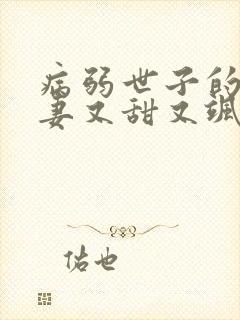 病弱世子的
妻又甜又飒
佑也